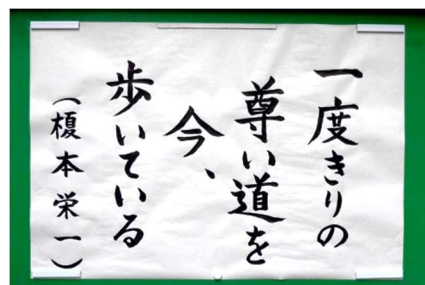 一度きりの
尊い道を
今、
歩いている
（榎本栄一）